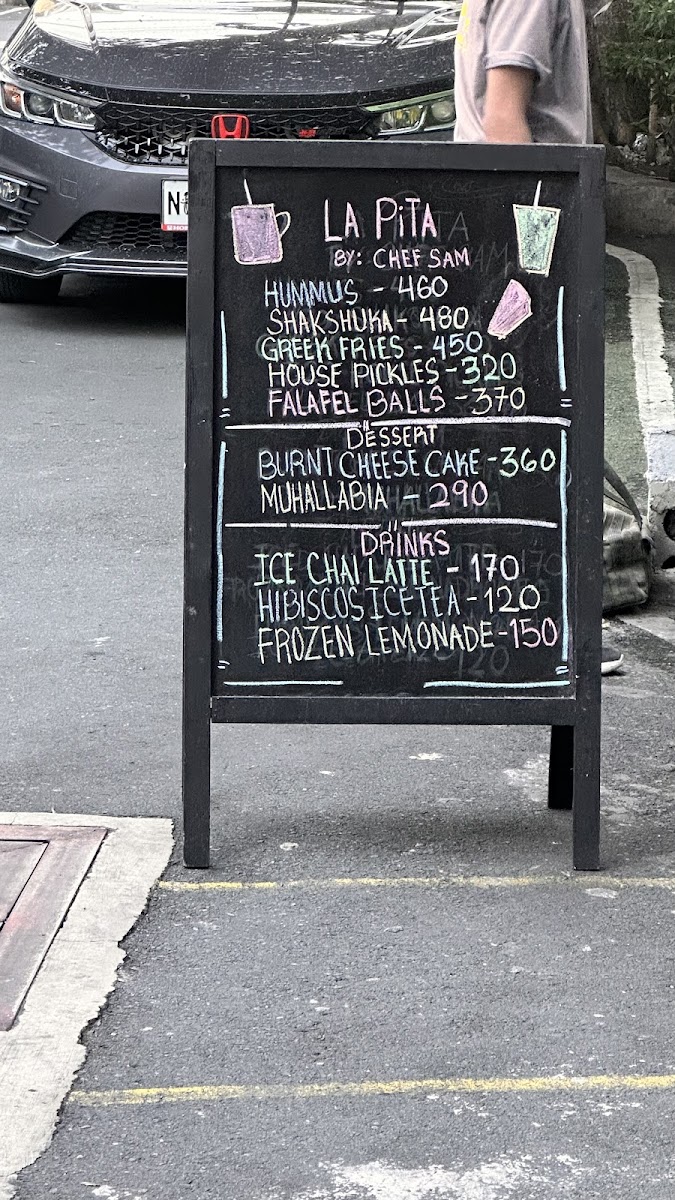 LA PiTA
BY: CHEF SAM
HUMMUS - 460
SHAKSHUKA - 480
GREEK FRIES - 450
HOUSE PICKLES - 320
FALAFEL BALLS - 370
DESSERT
BURNT CHEESE CAKE - 360
MUHALLABIA - 290
DRINKS
ICE CHAI LATTE - 170
HIBISCOS ICE TEA - 120
FROZEN LEMONADE - 150